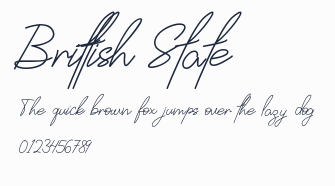 Brittish State
The quick brown fox jumps over the lazy dog
0123456789